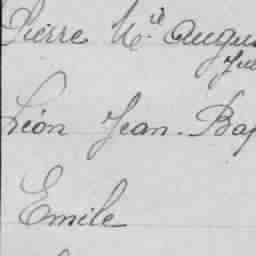 Pierre N.el Augu
Jul
Léon Jean-Bap
Emile